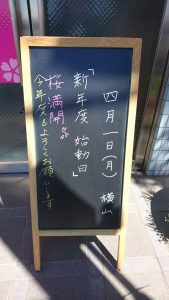 四月一日(月) 横山
「新年度 始動日」
桜満開
今年度もよろしくお願いします